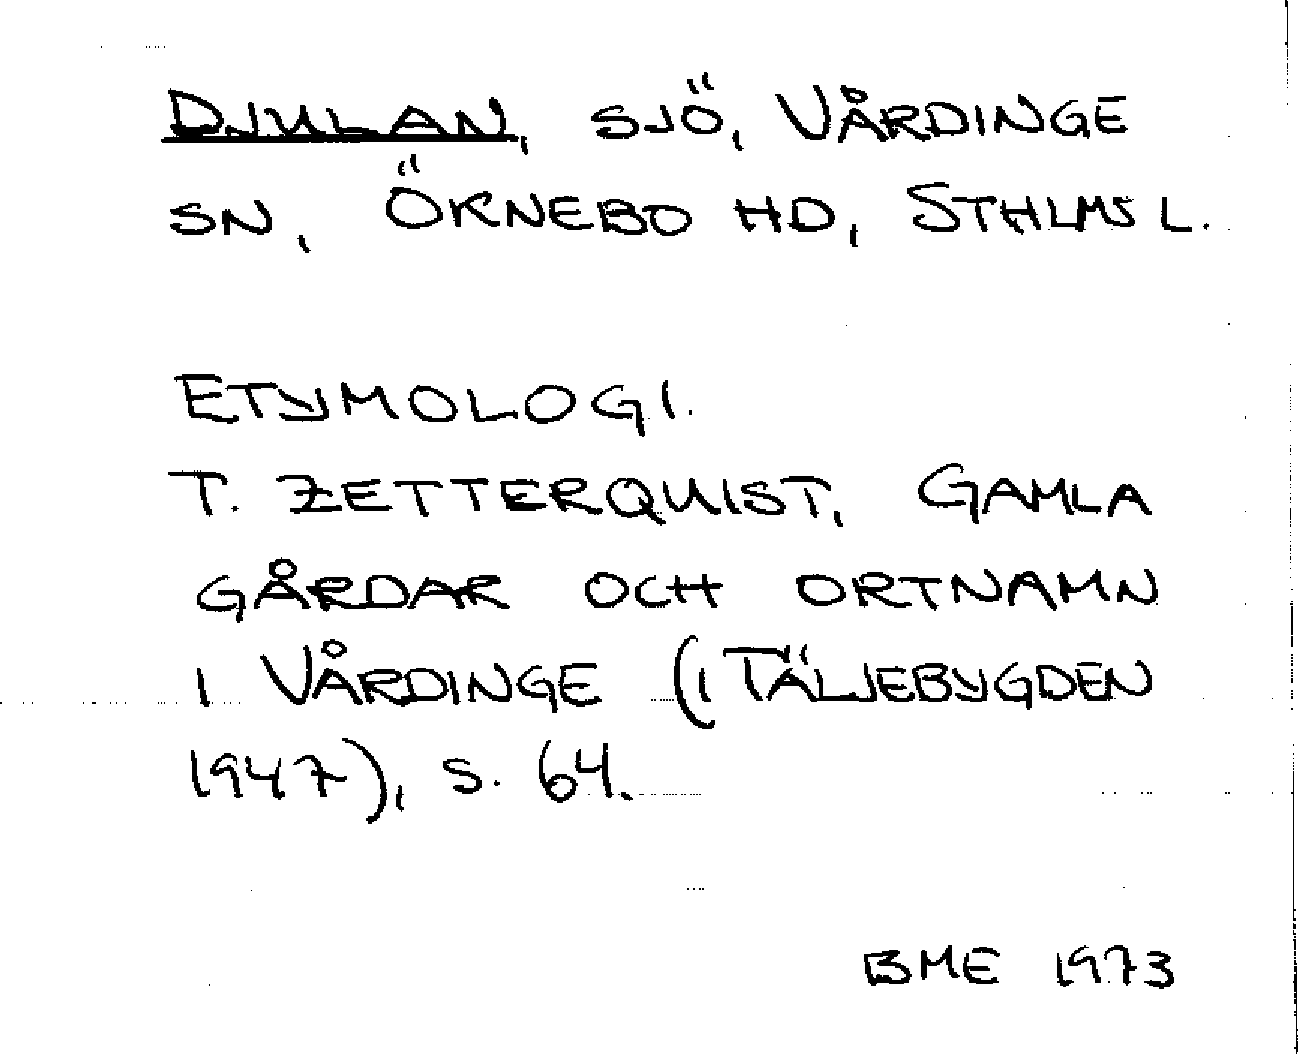 DJULAN, SJÖ, VÅRDINGE
SN, ÖKNEBO HD, STHLMS L.
ETYMOLOGI.
T. ZETTERQUIST, GAMLA
GÅRDAR OCH ORTNAMN
I VÅRDINGE (I TÄLJEBYGDEN
1947), S. 64.
BME 1973